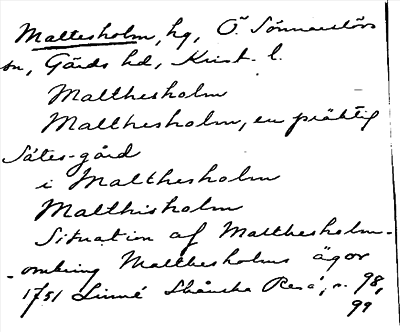 Maltesholm, hg, Ö. Sönnarslövs
sn, Gärds hd, Krist. l.
Malthesholm
Malthesholm, en präktig
Sätes-gård
i Malthesholm
Malthisholm
Situation af Malthesholm-
-omkring Malthesholms ägor
1751 Linné Skånska Resa, s. 98,
99